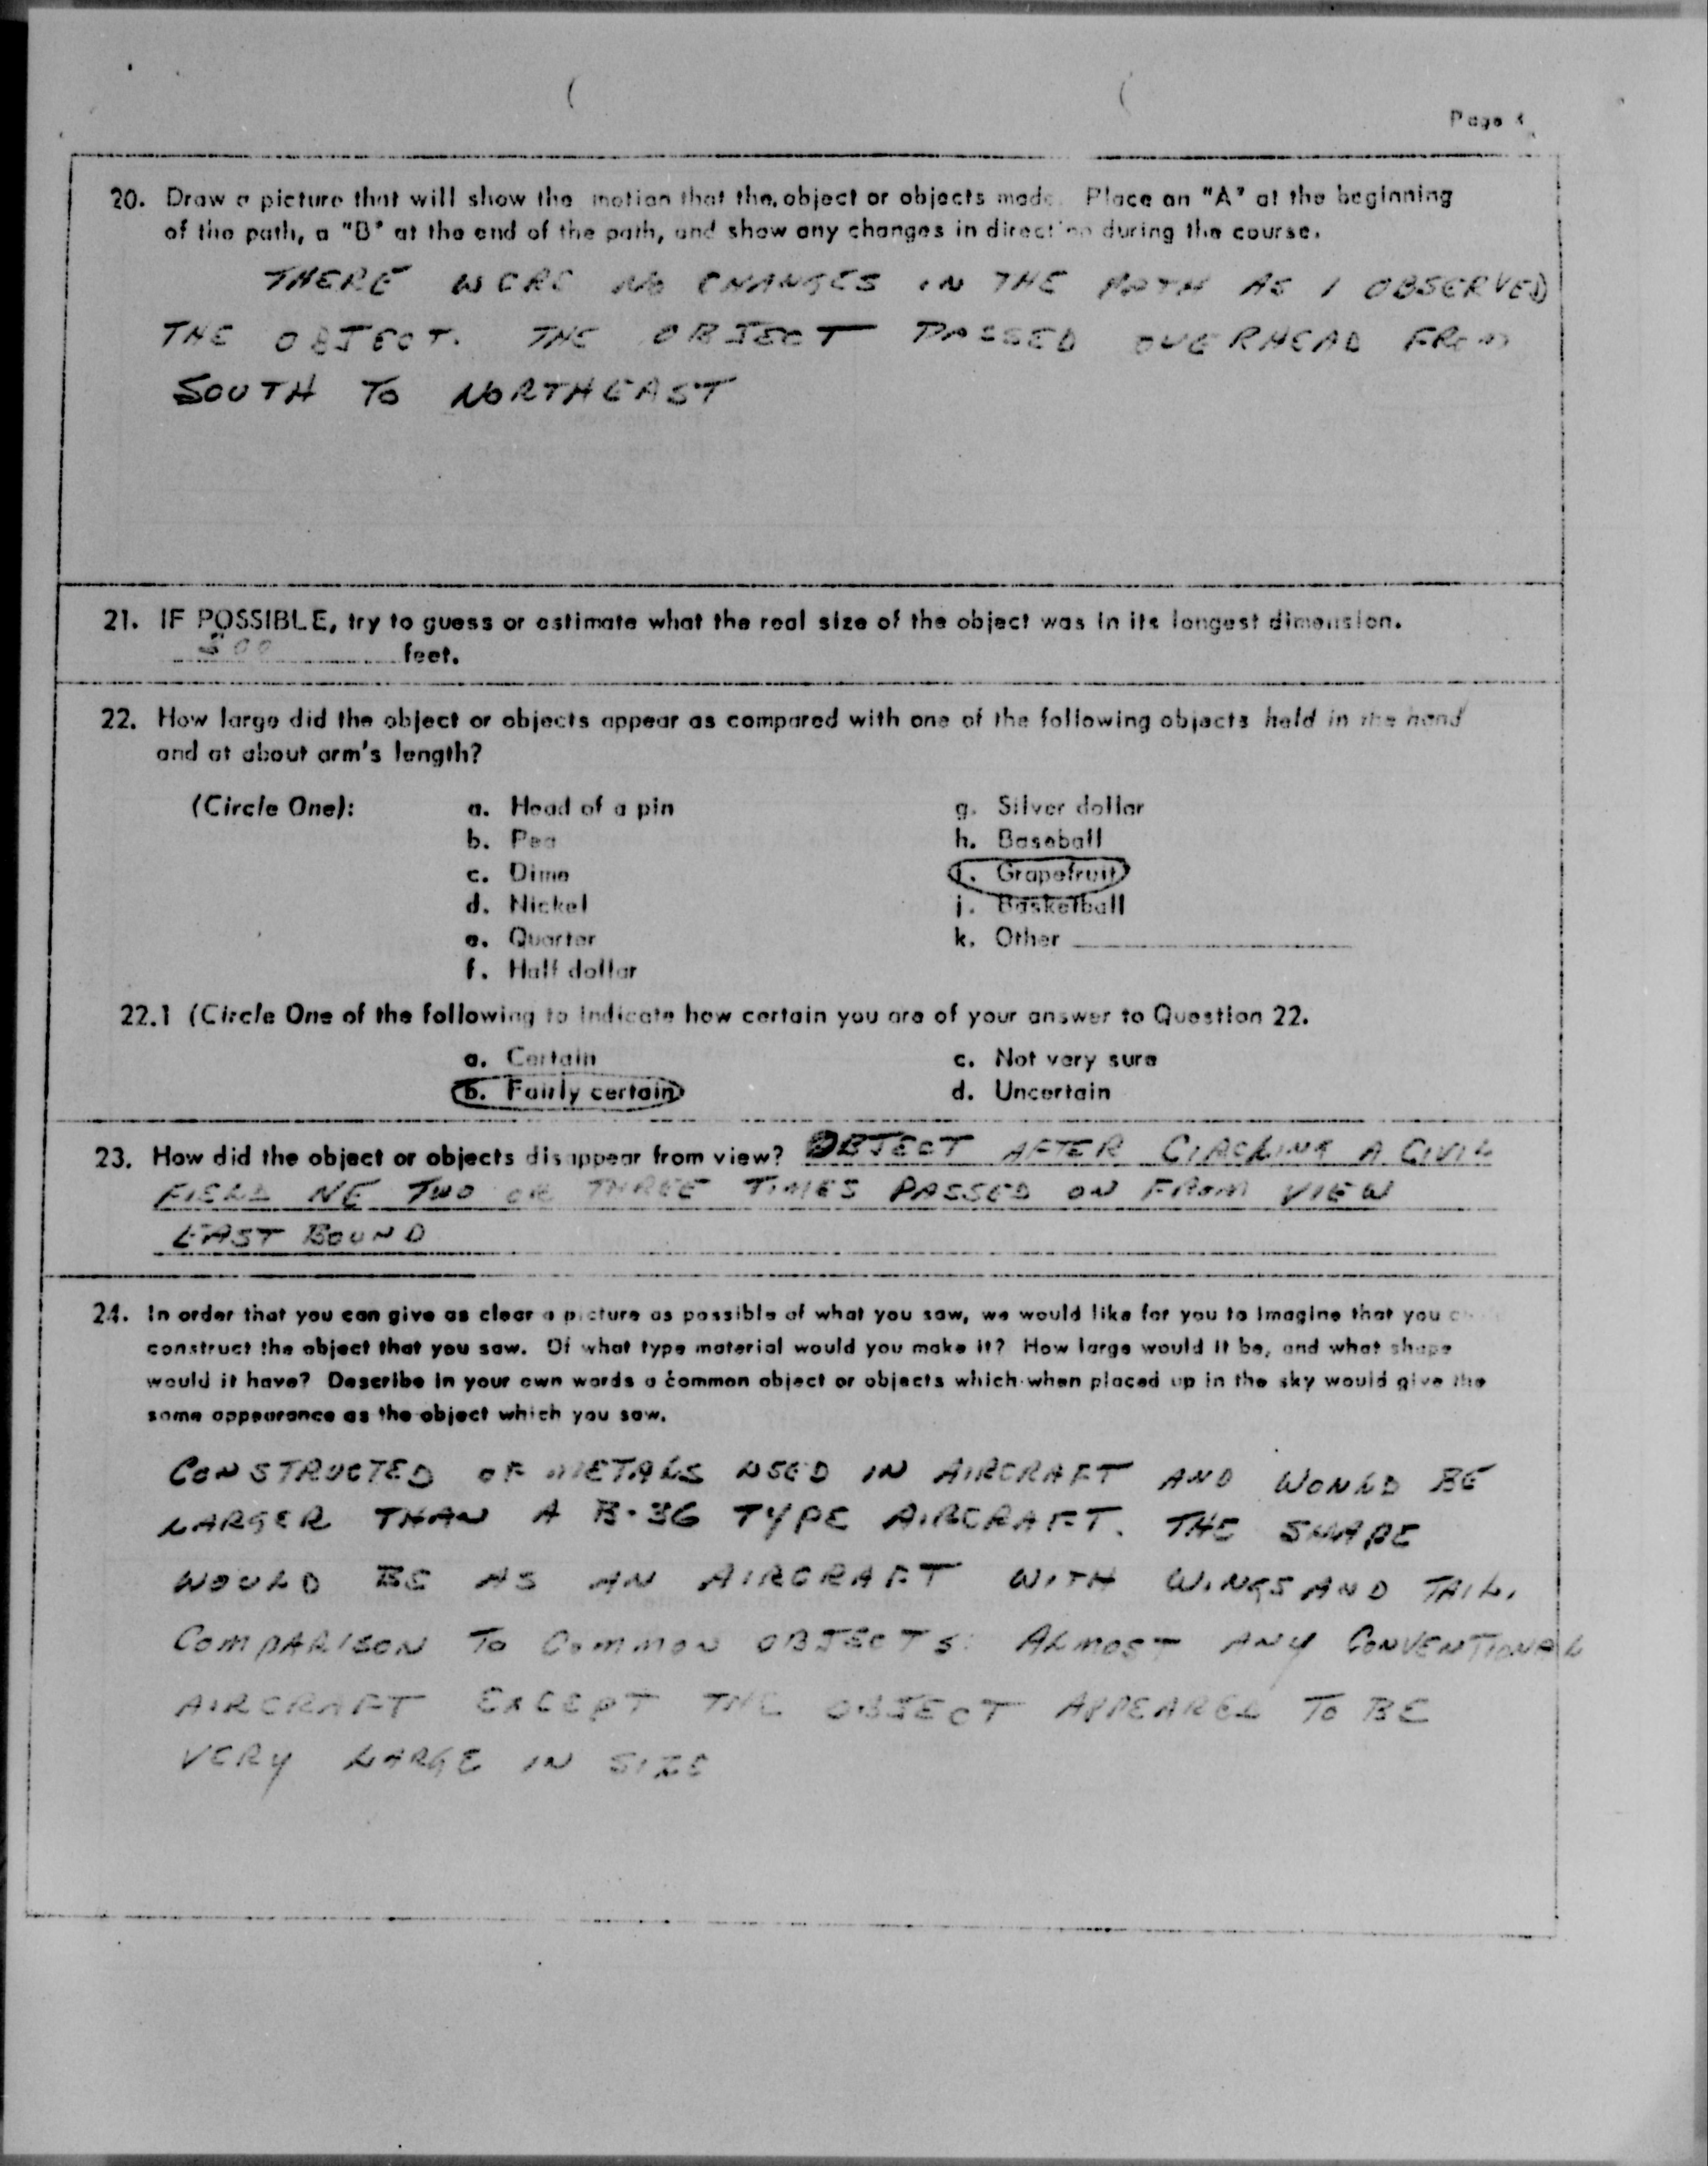 Page
20. Draw a picture that will show the motion that the object or objects made. Place an "A" at the beginning
of the path, a "B" at the end of the path, and show any changes in direction during the course.
THERE WERE NO CHANGES IN THE PATH AS I OBSERVED
THE OBJECT. THE OBJECT PASSED OVERHEAD FROM
SOUTH TO NORTHEAST
21. IF POSSIBLE, try to guess or estimate what the real size of the object was in its longest dimension.
500 feet.
22. How large did the object or objects appear as compared with one of the following objects held in the hand
and at about arm's length?
(Circle One): a. Head of a pin g. Silver dollar
b. Pea h. Baseball
c. Dime i. Grapefruit
d. Nickel j. Basketball
e. Quarter k. Other
f. Half dollar
22.1 (Circle One of the following to indicate how certain you are of your answer to Question 22.
a. Certain c. Not very sure
b. Fairly certain d. Uncertain
23. How did the object or objects disappear from view? OBJECT AFTER CIRCLING A CIVIL
FIELD NE TWO OR THREE TIMES PASSED ON FROM VIEW
EAST BOUND
24. In order that you can give as clear a picture as possible of what you saw, we would like for you to imagine that you
construct the object that you saw. Of what type material would you make it? How large would it be, and what shape
would it have? Describe in your own words a common object or objects which when placed up in the sky would give the
same appearance as the object which you saw.
CONSTRUCTED OF METALS USED IN AIRCRAFT AND WOULD BE
LARGER THAN A B-36 TYPE AIRCRAFT. THE SHAPE
WOULD BE AS AN AIRCRAFT WITH WINGS AND TAIL.
COMPARISON TO COMMON OBJECTS: ALMOST ANY CONVENTIONAL
AIRCRAFT EXCEPT THE OBJECT APPEARED TO BE
VERY LARGE IN SIZE